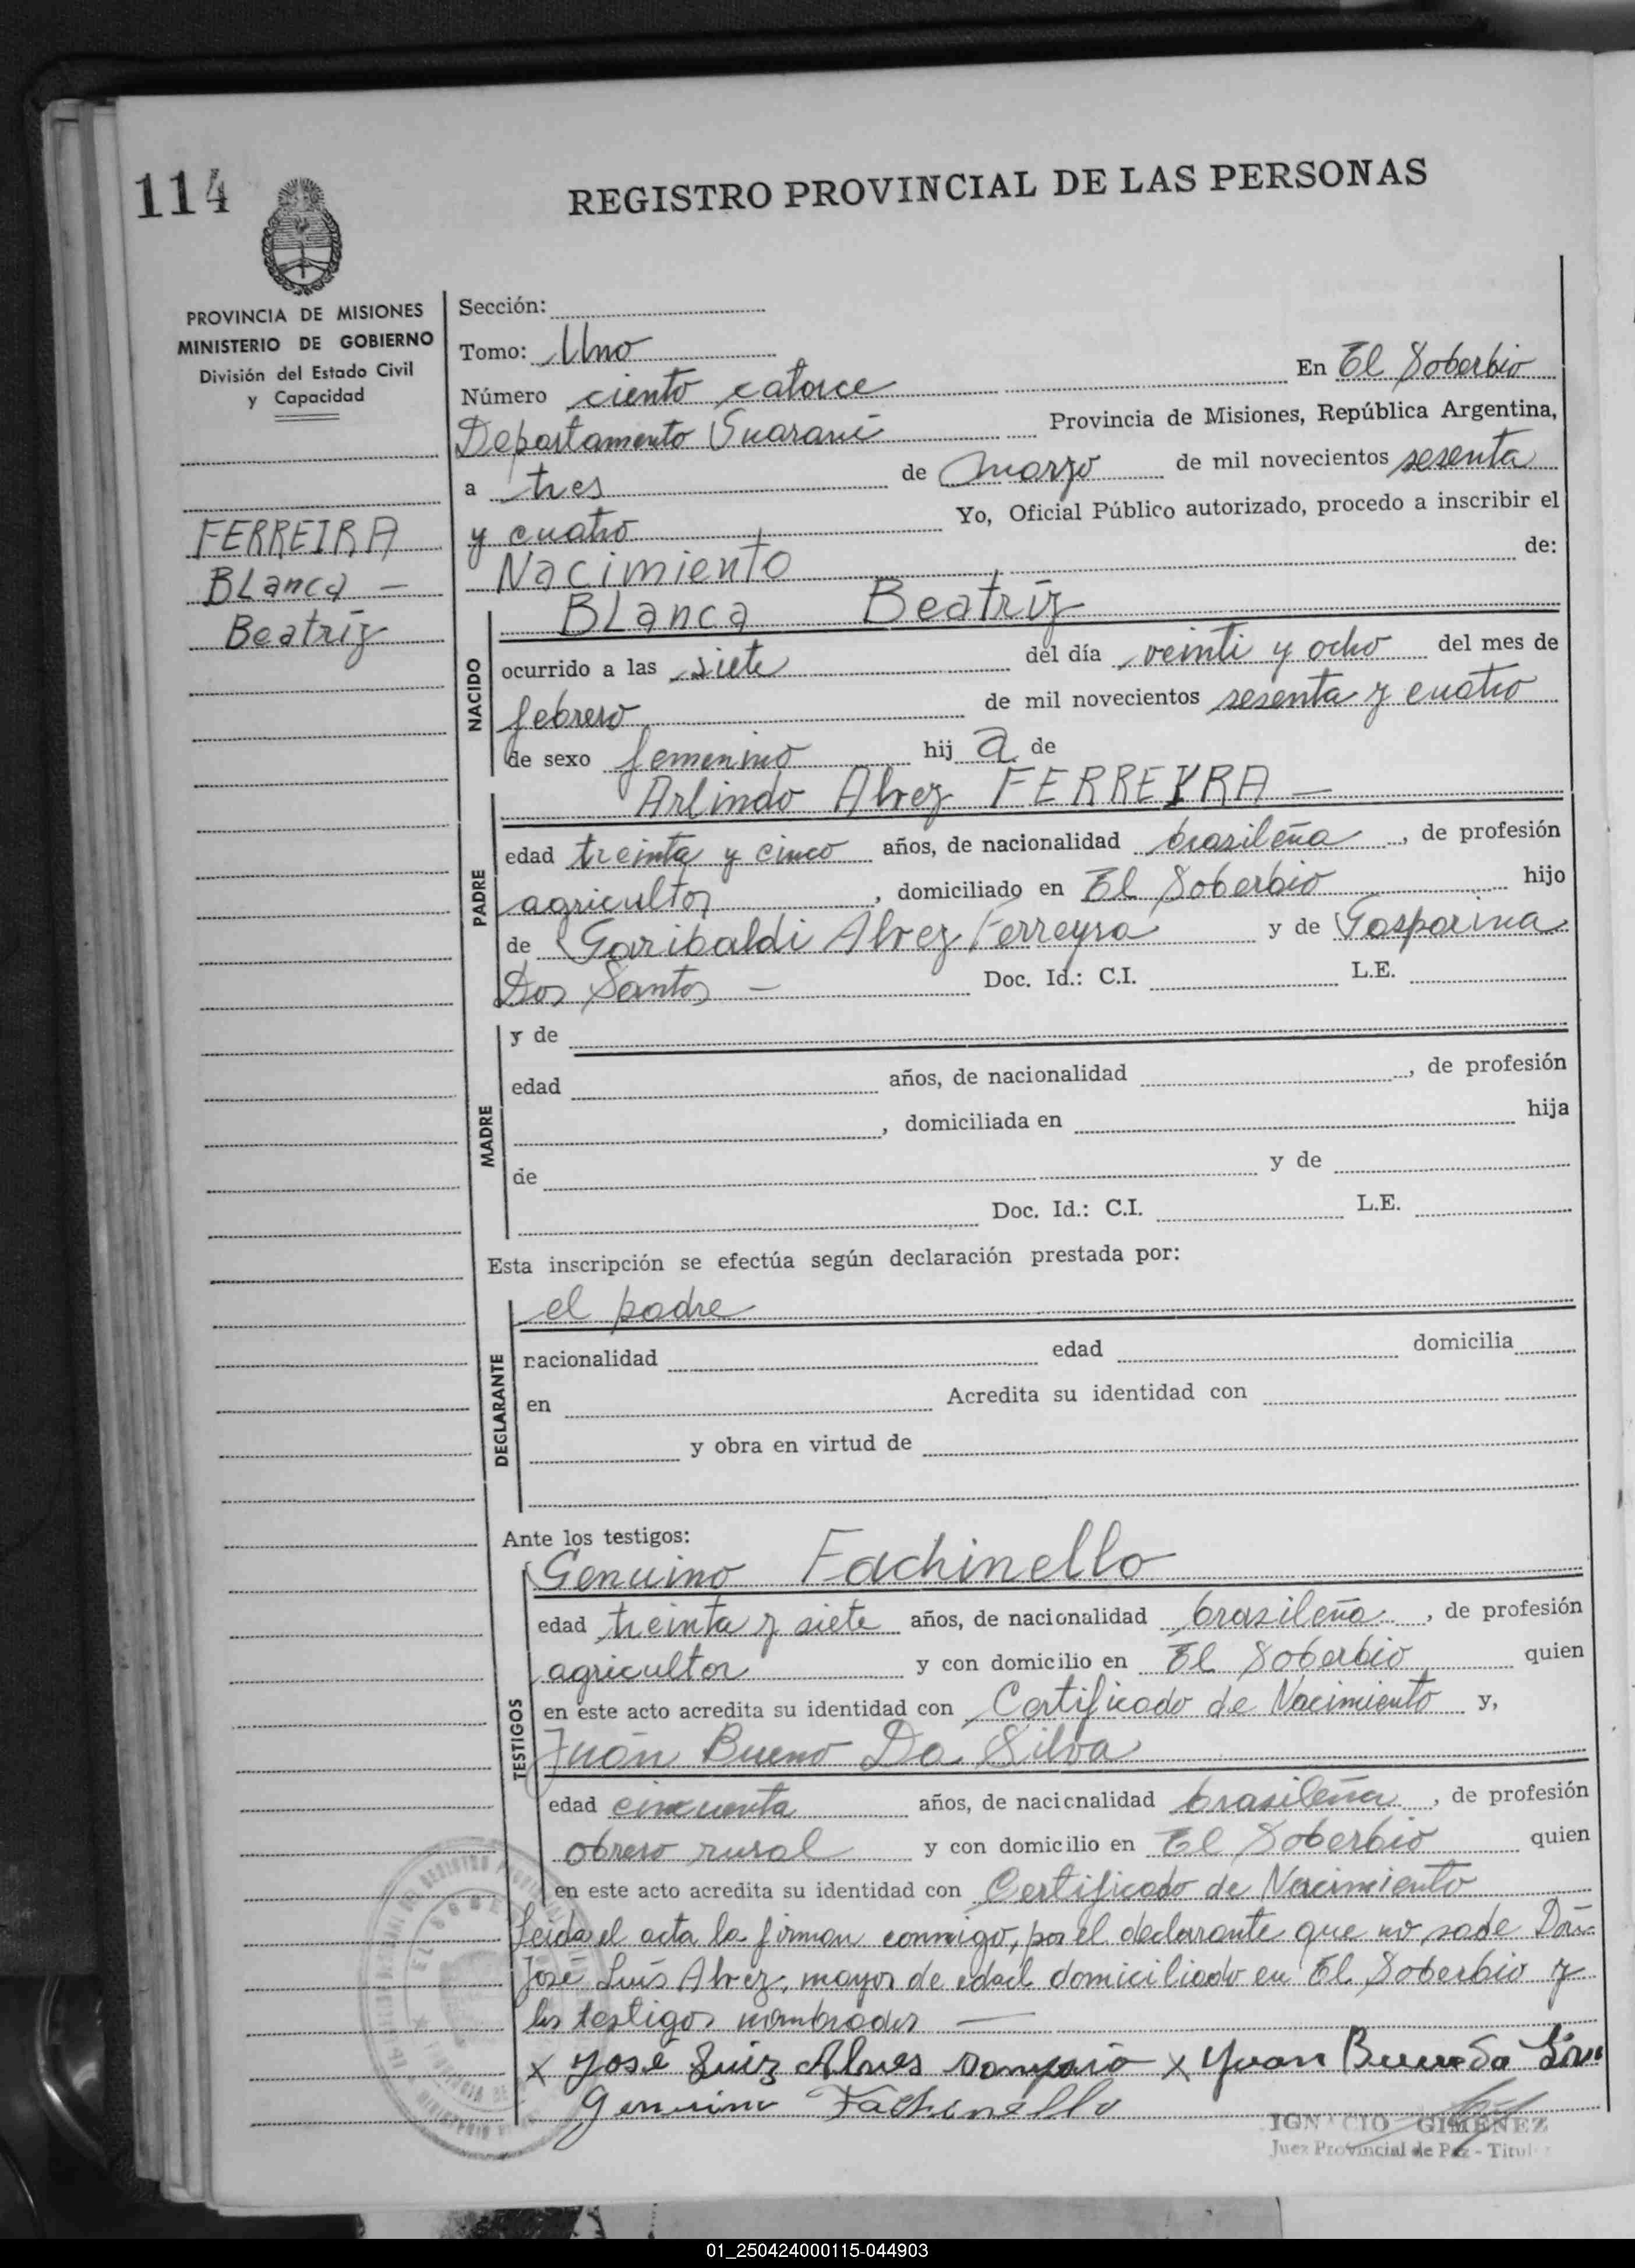 114
REGISTRO PROVINCIAL DE LAS PERSONAS
PROVINCIA DE MISIONES
MINISTERIO DE GOBIERNO
División del Estado Civil
y Capacidad
FERREIRA
BLanca —
Beatriz
Sección:
Tomo: Uno
Número ciento catorce En El Soberbio
Departamento Guarani Provincia de Misiones, República Argentina,
a tres de marzo de mil novecientos sesenta
y cuatro Yo, Oficial Público autorizado, procedo a inscribir el
Nacimiento de:
BLanca Beatriz
NACIDO
ocurrido a las siete del día veinti y ocho del mes de
febrero de mil novecientos sesenta y cuatro
de sexo femenino hij a de
Arlindo Alvez FERREYRA —
PADRE
edad treinta y cinco años, de nacionalidad brasileña, de profesión
agricultor, domiciliado en El Soberbio hijo
de Garibaldi Alvez Ferreyra y de Gasparina
Dos Santos — Doc. Id.: C.I. L.E.
MADRE
y de
edad años, de nacionalidad , de profesión
, domiciliada en hija
de y de
Doc. Id.: C.I. L.E.
Esta inscripción se efectúa según declaración prestada por:
DECLARANTE
el padre
nacionalidad edad domicilia
en Acredita su identidad con
y obra en virtud de
Ante los testigos:
TESTIGOS
Genuino Fachinello
edad treinta y siete años, de nacionalidad brasileña, de profesión
agricultor y con domicilio en El Soberbio quien
en este acto acredita su identidad con Certificado de Nacimiento y,
Juan Bueno Da Silva
edad cincuenta años, de nacionalidad brasileña, de profesión
obrero rural y con domicilio en El Soberbio quien
en este acto acredita su identidad con Certificado de Nacimiento
Leida el acta la firman conmigo, por el declarante que no sabe Don
José Luís Alvez, mayor de edad domiciliado en El Soberbio y
los testigos nombrados —
x José Luiz Alves x Yuan Bueno Da
Genuino Fachinello
IGNACIO GIMENEZ
Juez Provincial de Paz - Titul
01_250424000115-044903